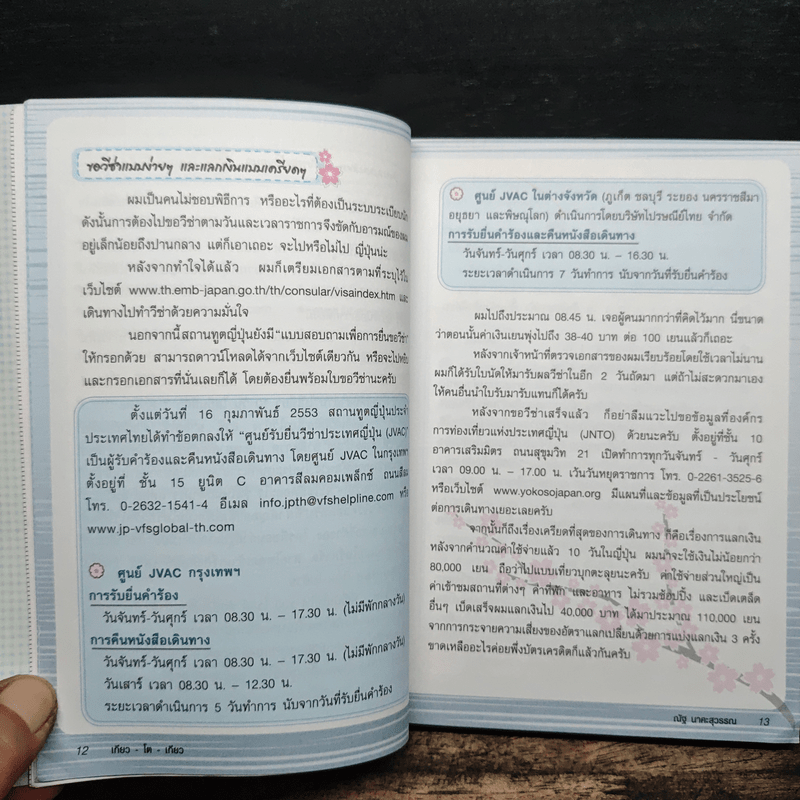 ขอวีซ่าแบบง่ายๆ และแลกเงินแบบเครียดๆ
ผมเป็นคนไม่ชอบพิธีการ หรืออะไรที่ต้องเป็นระบบระเบียบนัก
ดังนั้นการต้องไปขอวีซ่าตามวันและเวลาราชการจึงขัดกับอารมณ์ของผม
อยู่เล็กน้อยถึงปานกลาง แต่ก็เอาเถอะ จะไปหรือไม่ไป ญี่ปุ่นน่ะ
หลังจากทำใจได้แล้ว ผมก็เตรียมเอกสารตามที่ระบุไว้ใน
เว็บไซต์ www.th.emb-japan.go.th/th/consular/visaindex.htm และ
เดินทางไปทำวีซ่าด้วยความมั่นใจ
นอกจากนี้สถานทูตญี่ปุ่นยังมี “แบบสอบถามเพื่อการยื่นขอวีซ่า”
ให้กรอกด้วย สามารถดาวน์โหลดได้จากเว็บไซต์เดียวกัน หรือจะไปหยิบ
และกรอกเอกสารที่นั่นเลยก็ได้ โดยต้องยื่นพร้อมใบขอวีซ่านะครับ
ตั้งแต่วันที่ 16 กุมภาพันธ์ 2553 สถานทูตญี่ปุ่นประจำ
ประเทศไทยได้ทำข้อตกลงให้ “ศูนย์รับยื่นวีซ่าประเทศญี่ปุ่น (JVAC)”
เป็นผู้รับคำร้องและคืนหนังสือเดินทาง โดยศูนย์ JVAC ในกรุงเทพฯ
ตั้งอยู่ที่ ชั้น 15 ยูนิต C อาคารสีลมคอมเพล็กซ์ ถนนสีลม
โทร. 0-2632-1541-4 อีเมล info.jpth@vfshelpline.com หรือ
www.jp-vfsglobal-th.com
ศูนย์ JVAC กรุงเทพฯ
การรับยื่นคำร้อง
วันจันทร์-วันศุกร์ เวลา 08.30 น. – 17.30 น. (ไม่มีพักกลางวัน)
การคืนหนังสือเดินทาง
วันจันทร์-วันศุกร์ เวลา 08.30 น. – 17.30 น. (ไม่มีพักกลางวัน)
วันเสาร์ เวลา 08.30 น. – 12.30 น.
ระยะเวลาดำเนินการ 5 วันทำการ นับจากวันที่รับยื่นคำร้อง
12 เกียว - โต - เกียว
ศูนย์ JVAC ในต่างจังหวัด (ภูเก็ต ชลบุรี ระยอง นครราชสีมา
อยุธยา และพิษณุโลก) ดำเนินการโดยบริษัทไปรษณีย์ไทย จำกัด
การรับยื่นคำร้องและคืนหนังสือเดินทาง
วันจันทร์-วันศุกร์ เวลา 08.30 น. – 16.30 น.
ระยะเวลาดำเนินการ 7 วันทำการ นับจากวันที่รับยื่นคำร้อง
ผมไปถึงประมาณ 08.45 น. เจอผู้คนมากกว่าที่คิดไว้มาก นี่ขนาด
ว่าตอนนั้นค่าเงินเยนพุ่งไปถึง 38-40 บาท ต่อ 100 เยนแล้วก็เถอะ
หลังจากเจ้าหน้าที่ตรวจเอกสารของผมเรียบร้อยโดยใช้เวลาไม่นาน
ผมก็ได้รับใบนัดให้มารับผลวีซ่าในอีก 2 วันถัดมา แต่ถ้าไม่สะดวกมาเอง
ให้คนอื่นนำใบรับมารับแทนก็ได้ครับ
หลังจากขอวีซ่าเสร็จแล้ว ก็อย่าลืมแวะไปขอข้อมูลที่องค์กร
การท่องเที่ยวแห่งประเทศญี่ปุ่น (JNTO) ด้วยนะครับ ตั้งอยู่ที่ชั้น 10
อาคารเสริมมิตร ถนนสุขุมวิท 21 เปิดทำการทุกวันจันทร์ - วันศุกร์
เวลา 09.00 น. – 17.00 น. เว้นวันหยุดราชการ โทร. 0-2261-3525-6
หรือเว็บไซต์ www.yokosojapan.org มีแผนที่และข้อมูลที่เป็นประโยชน์
ต่อการเดินทางเยอะเลยครับ
จากนั้นก็ถึงเรื่องเครียดที่สุดของการเดินทาง ก็คือเรื่องการแลกเงิน
หลังจากคำนวณค่าใช้จ่ายแล้ว 10 วันในญี่ปุ่น ผมน่าจะใช้เงินไม่น้อยกว่า
80,000 เยน ถือว่าไปแบบเที่ยวบุกตะลุยนะครับ ค่าใช้จ่ายส่วนใหญ่เป็น
ค่าเข้าชมสถานที่ต่างๆ ค่าที่พัก และอาหาร ไม่รวมช้อปปิ้ง และเบ็ดเตล็ด
อื่นๆ เบ็ดเสร็จผมแลกเงินไป 40,000 บาท ได้มาประมาณ 110,000 เยน
จากการกระจายความเสี่ยงของอัตราแลกเปลี่ยนด้วยการแบ่งแลกเงิน 3 ครั้ง
ขาดเหลืออะไรค่อยพึ่งบัตรเครดิตก็แล้วกันครับ
ณัฐ นาคะสุวรรณ 13